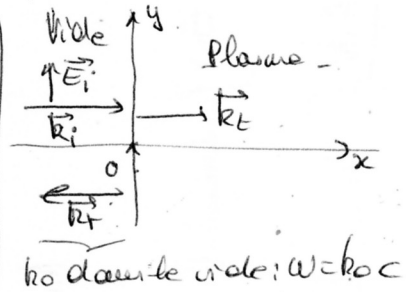 Vide
y
Plasma
E⃗i
k⃗i
k⃗t
0
x
k⃗r
k0 dans le vide : ω = k0 c